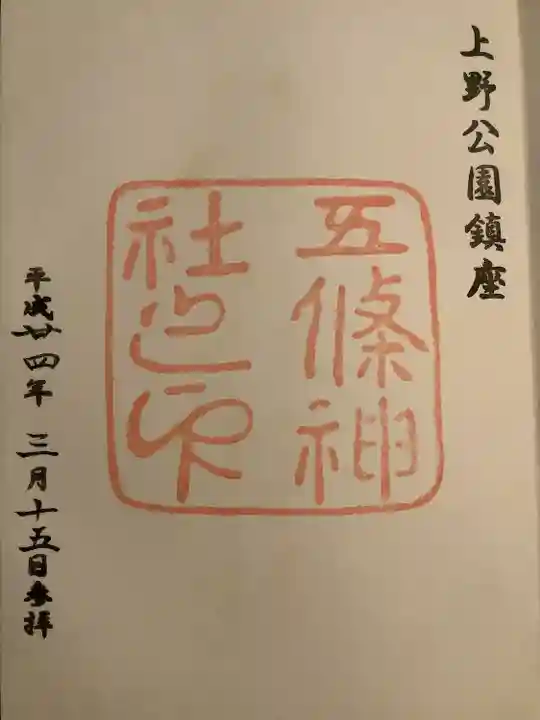 上野公園鎮座
五條神
社之印
平成廿四年三月十五日参拝